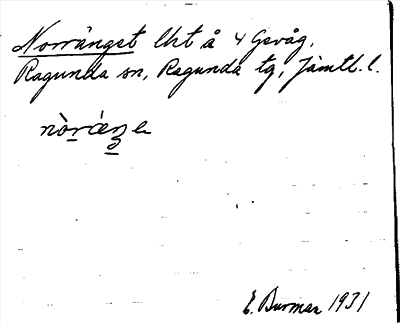 Norränget lht å 4 Gevåg,
Ragunda sn, Ragunda tg, Jämtl. l.
E. Burman 1931